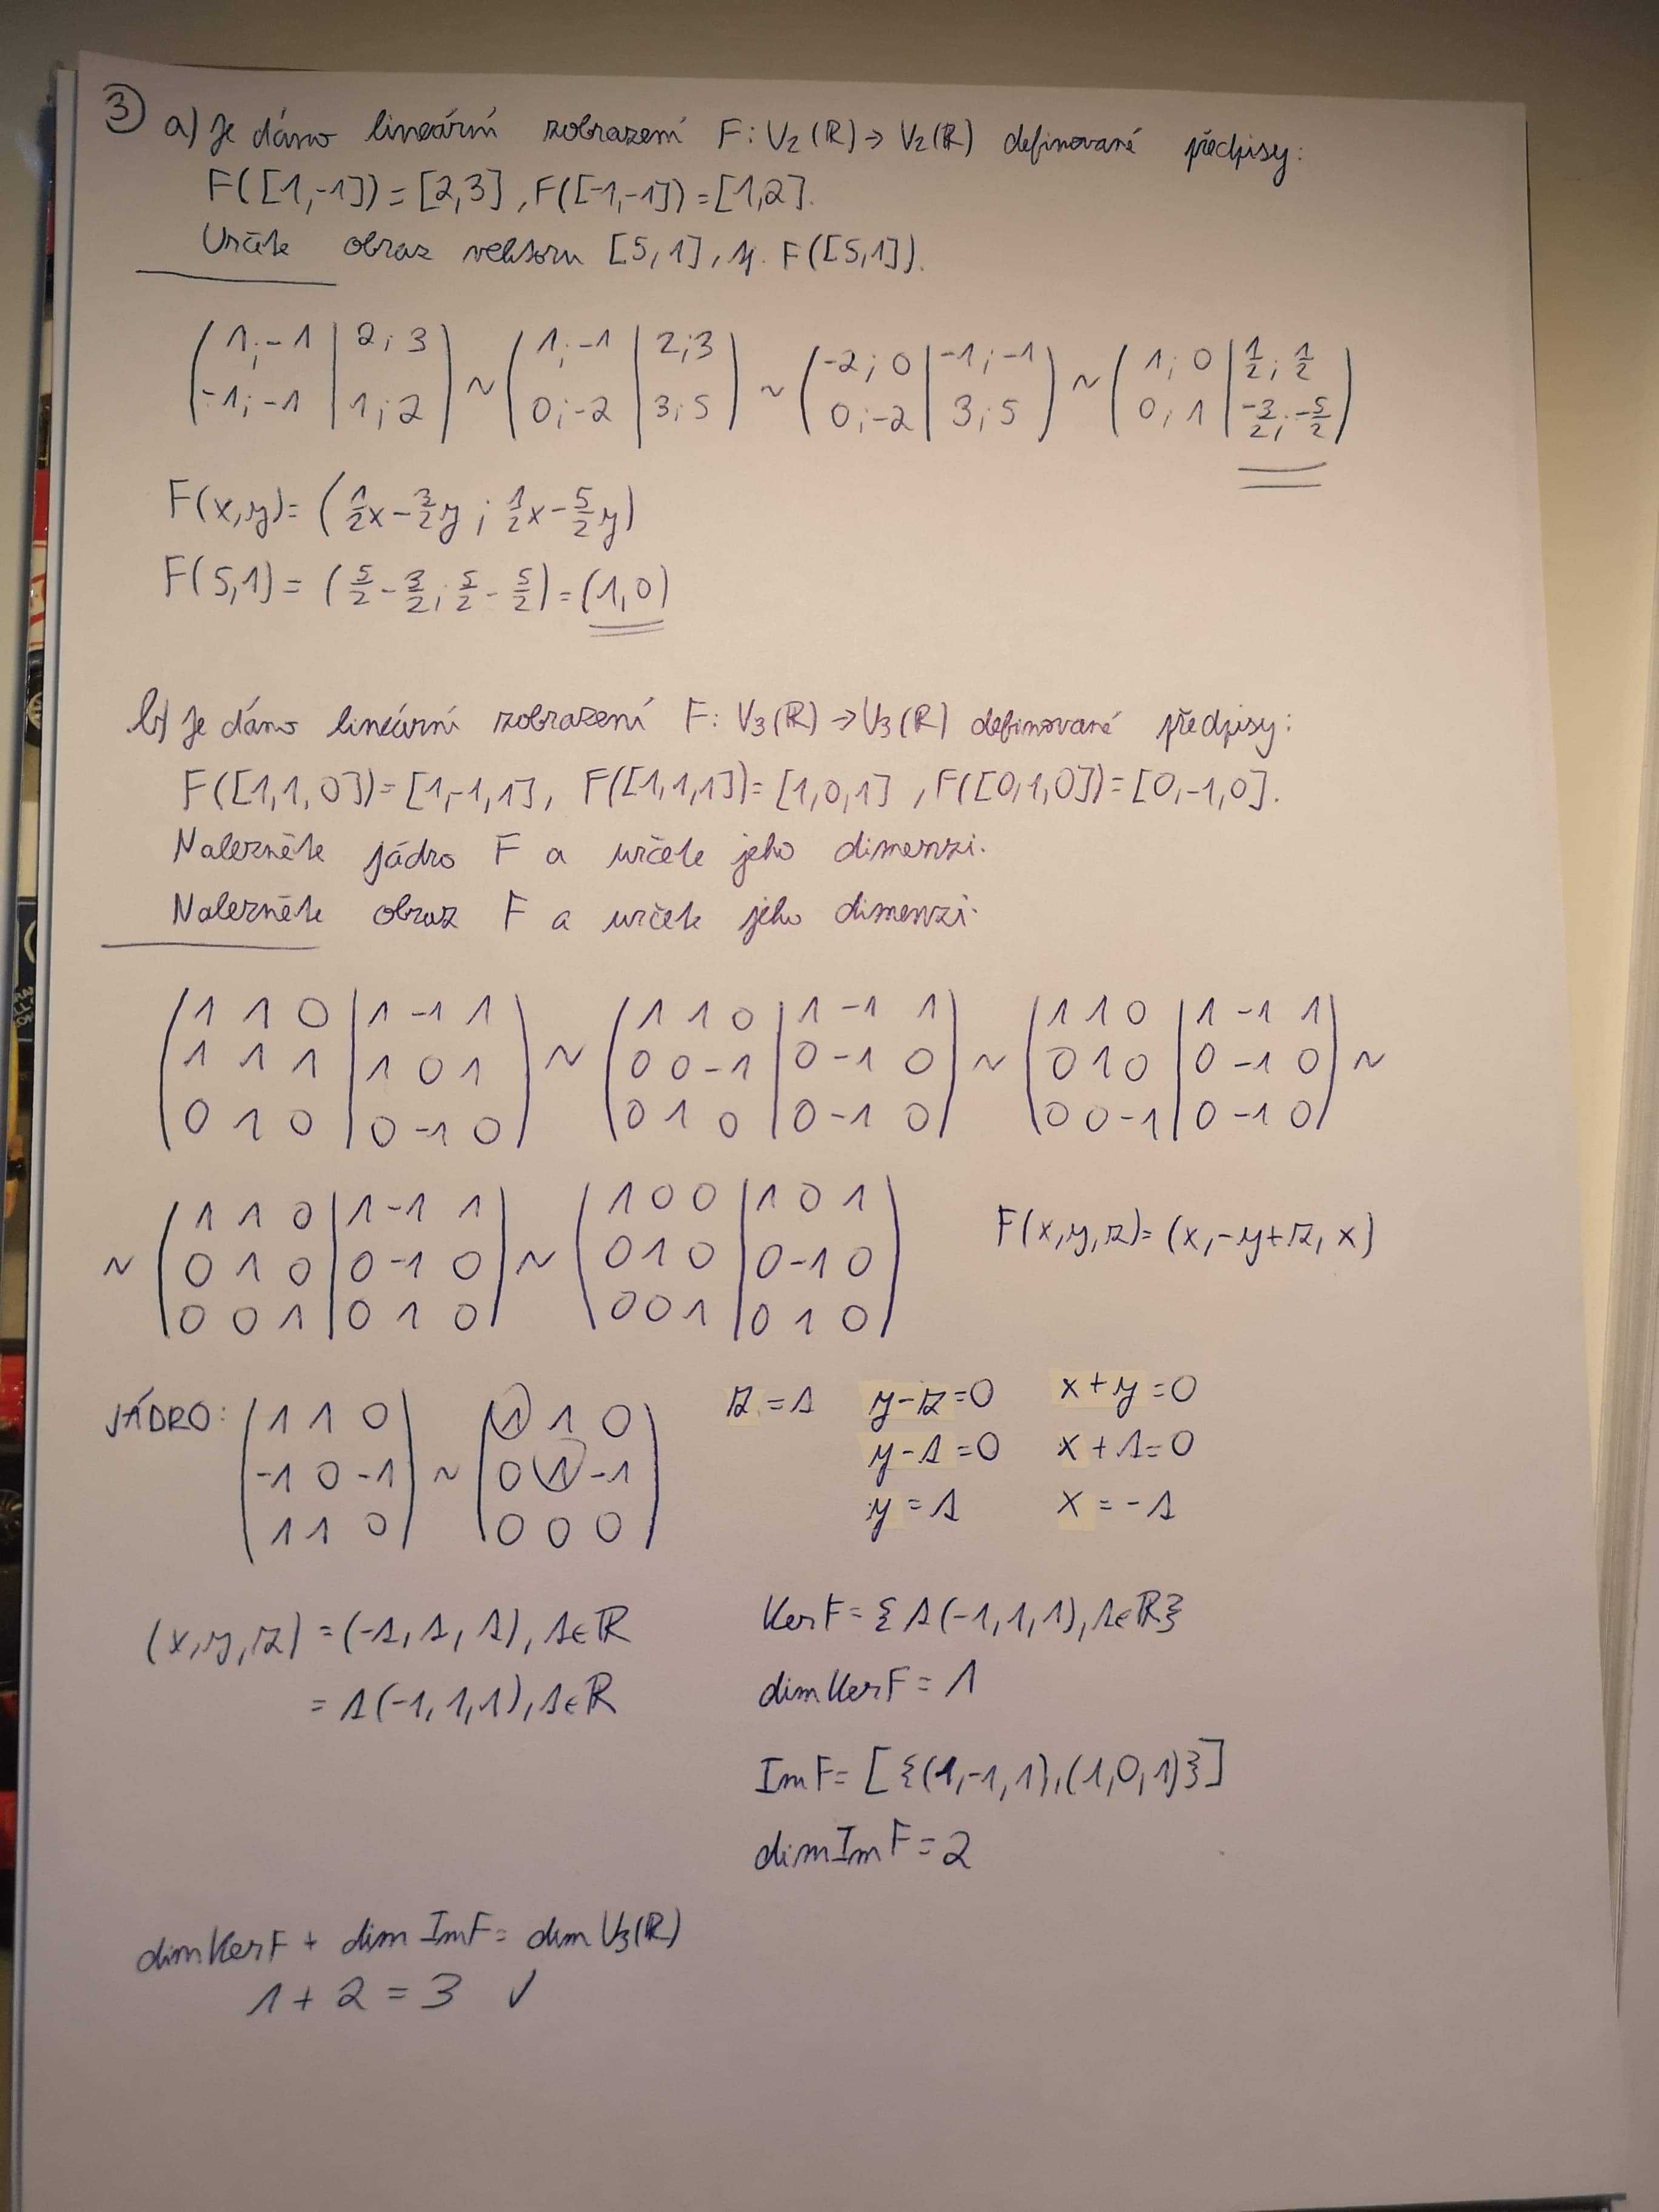 3 a) Je dáno lineární zobrazení F: V₂(ℝ) → V₂(ℝ) definované předpisy:
F([1,-1]) = [2,3], F([-1,-1]) = [1,2].
Určete obraz vektoru [5,1], tj. F([5,1]).
(1;-1 | 2;3) ~ (1;-1 | 2;3) ~ (-2;0 | -1;-1) ~ (1;0 | 1/2; 1/2)
(-1;-1 | 1;2) (0;-2 | 3;5) (0;-2 | 3;5) (0;1 | -3/2; -5/2)
F(x,y) = (1/2x - 3/2y ; 1/2x - 5/2y)
F(5,1) = (5/2 - 3/2; 5/2 - 5/2) = (1,0)
b) Je dáno lineární zobrazení F: V₃(ℝ) → V₃(ℝ) definované předpisy:
F([1,1,0]) = [1,-1,1], F([1,1,1]) = [1,0,1], F([0,1,0]) = [0,-1,0].
Nalezněte jádro F a určete jeho dimenzi.
Nalezněte obraz F a určete jeho dimenzi.
(1 1 0 | 1 -1 1) (1 1 0 | 1 -1 1) (1 1 0 | 1 -1 1)
(1 1 1 | 1 0 1) ~ (0 0 -1 | 0 -1 0) ~ (0 1 0 | 0 -1 0) ~
(0 1 0 | 0 -1 0) (0 1 0 | 0 -1 0) (0 0 -1 | 0 -1 0)
(1 1 0 | 1 -1 1) (1 0 0 | 1 0 1) F(x,y,z) = (x, -y+z, x)
~ (0 1 0 | 0 -1 0) ~ (0 1 0 | 0 -1 0)
(0 0 1 | 0 1 0) (0 0 1 | 0 1 0)
JÁDRO: (1 1 0) (1 1 0) z = s y-z=0 x+y=0
(-1 0 -1) ~ (0 1 -1) y-s=0 x+s=0
(1 1 0) (0 0 0) y = s x = -s
(x,y,z) = (-s, s, s), s∈ℝ
= s(-1,1,1), s∈ℝ
Ker F = {s(-1,1,1), s∈ℝ}
dim Ker F = 1
Im F = [{(1,-1,1),(1,0,1)}]
dim Im F = 2
dim Ker F + dim Im F = dim V₃(ℝ)
1 + 2 = 3 ✓